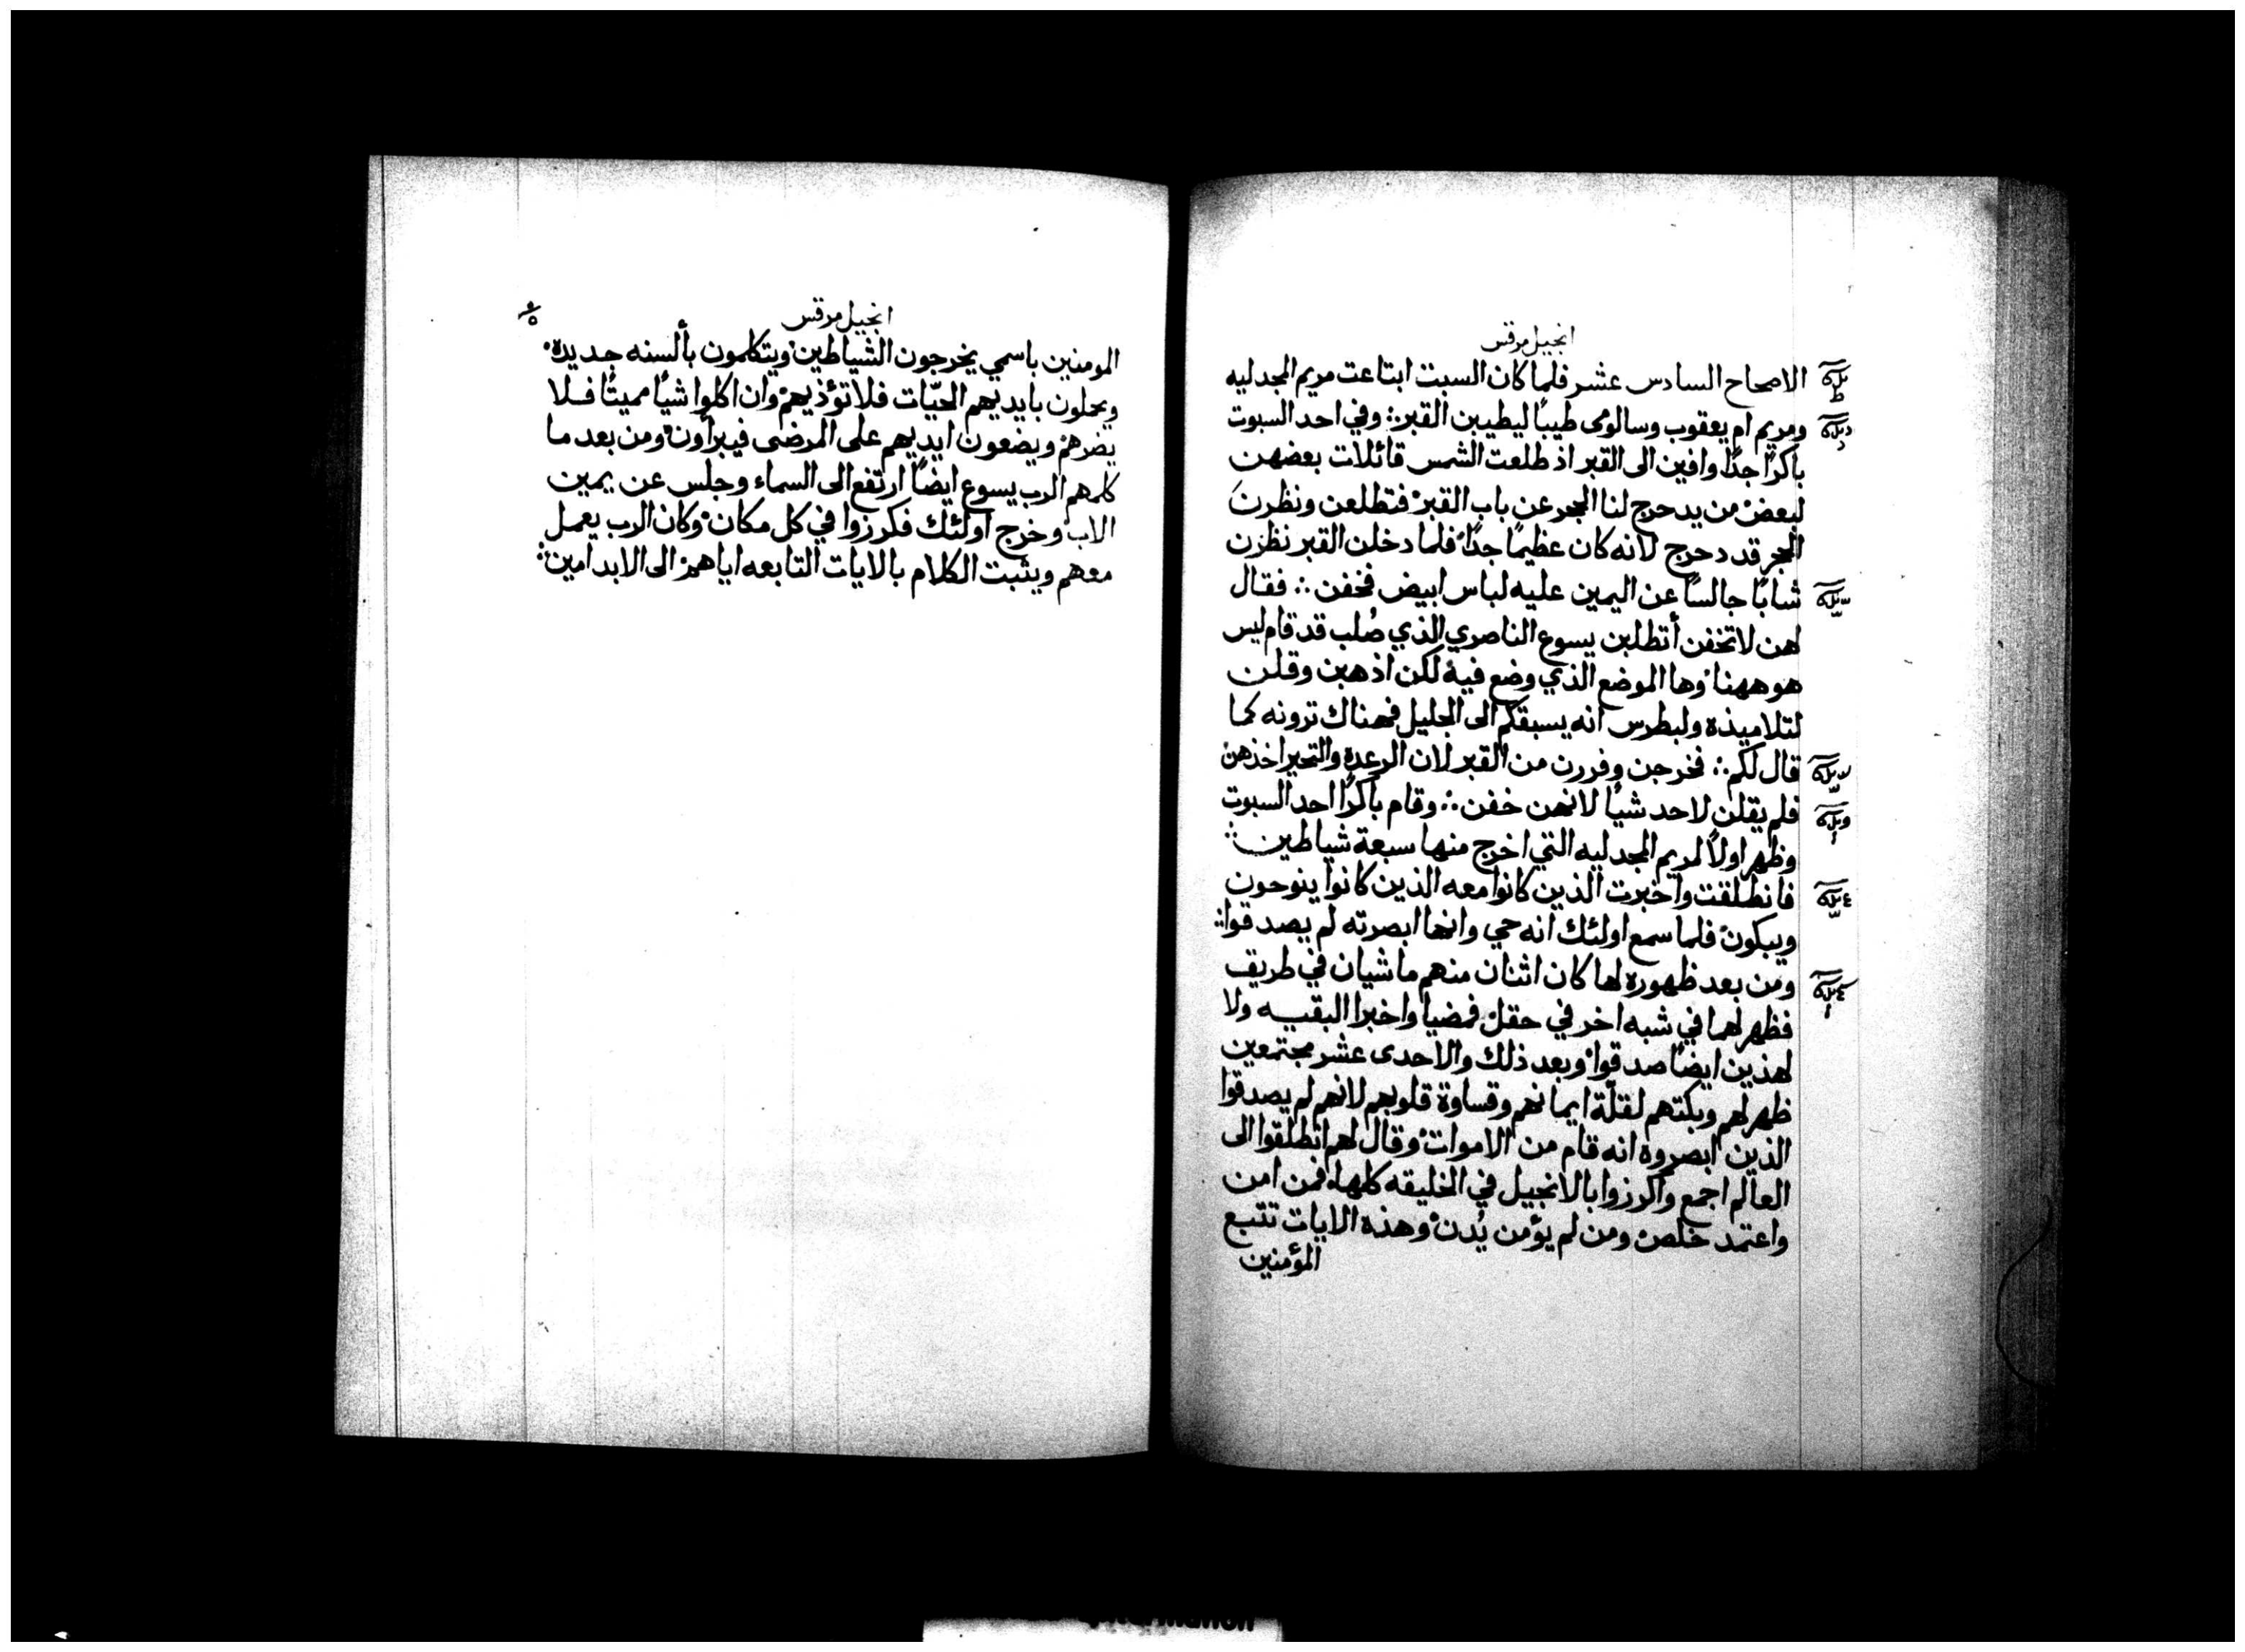 انجيل مرقس
الاصحاح السادس عشر فلما كان السبت ابتاعت مريم المجدليه
ومريم ام يعقوب وسالومى طيبًا ليطيبن القبر؛ وفي احد السبوت
باكرًا جدًا وافين الى القبر اذ طلعت الشمس قائلات بعضهن
لبعض من يدحرج لنا الحجر عن باب القبر فتطلعن ونظرن
الحجر قد دحرج لانه كان عظيمًا جدًا فلما دخلن القبر نظرن
شابًا جالسًا عن اليمين عليه لباس ابيض فخفن ∴ فقال
لهن لا تخفن أتطلبن يسوع الناصري الذي صُلب قد قام ليس
هو ههنا وها الموضع الذي وضع فيه لكن اذهبن وقلن
لتلاميذه ولبطرس انه يسبقكم الى الجليل فهناك ترونه كما
قال لكم ∴ فخرجن وفررن من القبر لان الرعده والتحير اخذهن
فلم يقلن لاحد شيًا لانهن خفن ∴ وقام باكرًا احد السبوت
وظهر اولاً لمريم المجدليه التي اخرج منها سبعة شياطين ∴
فانطلقت واخبرت الذين كانوا معه الذين كانوا ينوحون
ويبكون فلما سمع اولئك انه حي وانها ابصرته لم يصدقوا ∴
ومن بعد ظهوره لها كان اثنان منهم ماشيان في طريق
فظهر لهما في شبه اخر في حقل فمضيا واخبرا البقيه ولا
لهذين ايضًا صدقوا وبعد ذلك والاحدى عشر مجتمعين
ظهر لهم وبكتهم لقلّة ايمانهم وقساوة قلوبهم لانهم لم يصدقوا
الذين ابصروه انه قام من الاموات وقال لهم انطلقوا الى
العالم اجمع واكرزوا بالانجيل في الخليقه كلها فمن امن
واعتمد خلص ومن لم يؤمن يُدن وهذه الايات تتبع
المؤمنين
انجيل مرقس
المومنين باسمي يخرجون الشياطين ويتكلمون بألسنه جديده
ويحلون بايديهم الحيّات فلا تؤذيهم وان اكلوا شيًا مميتًا فلا
يضرهم ويضعون ايديهم على المرضى فيبرأون ومن بعد ما
كلمهم الرب يسوع ايضًا ارتفع الى السماء وجلس عن يمين
الاب وخرج اولئك فكرزوا في كل مكان وكان الرب يعمل
معهم ويثبت الكلام بالايات التابعه اياهم الى الابد امين ∴